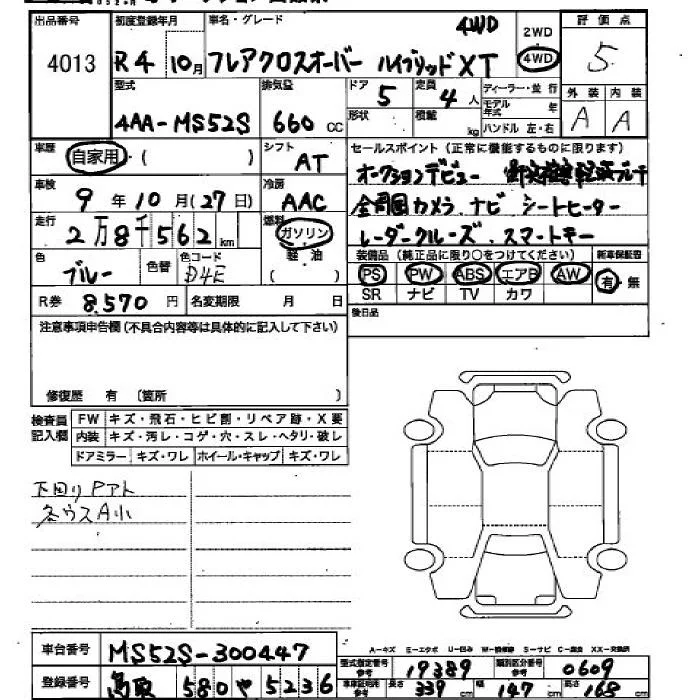 出品番号 初度登録年月 車名・グレード 4WD 2WD 評価点
4013 R4 10月 フレアクロスオーバー ハイブリッドXT 4WD 5
型式 排気量 ドア 5 定員 4人 ディーラー・並行 外装 内装
4AA-MS52S 660 CC 形状 積載 kg モデル年式 年 A A
ハンドル 左・右
車歴 自家用・( ) シフト AT セールスポイント(正常に機能するものに限ります)
車検 9年10月(27日) 冷房 AAC オークションデビュー
走行 2万8千562km 燃料 ガソリン 全周囲カメラ、ナビ シートヒーター
色 ブルー 色替 色コード D4E 軽・油 ( ) レーダークルーズ、スマートキー
装備品(純正品に限り○をつけてください) 新車保証書
PS PW ABS エアB AW 有・無
R券 8.570円 名変期限 月 日 SR ナビ TV カワ
注意事項申告欄(不具合内容等は具体的に記入して下さい) 後日品
修復歴 有 〔箇所 〕
検査員記入欄 FW キズ・飛石・ヒビ割・リペア跡・X要
内装 キズ・汚レ・コゲ・穴・スレ・ヘタリ・破レ
ドアミラー キズ・ワレ ホイール・キャップ キズ・ワレ
下回りPアト
各ウスA小
車台番号 MS52S-300447 A-キズ E-エクボ U-凹み W-補修跡 S-サビ C-腐食 XX-交換済
型式指定番号 参考 19389 類別区分番号 参考 0609
登録番号 鳥取 580 や 5236 車庫証明用 参考 長さ 339cm 幅 147cm 高さ 168cm